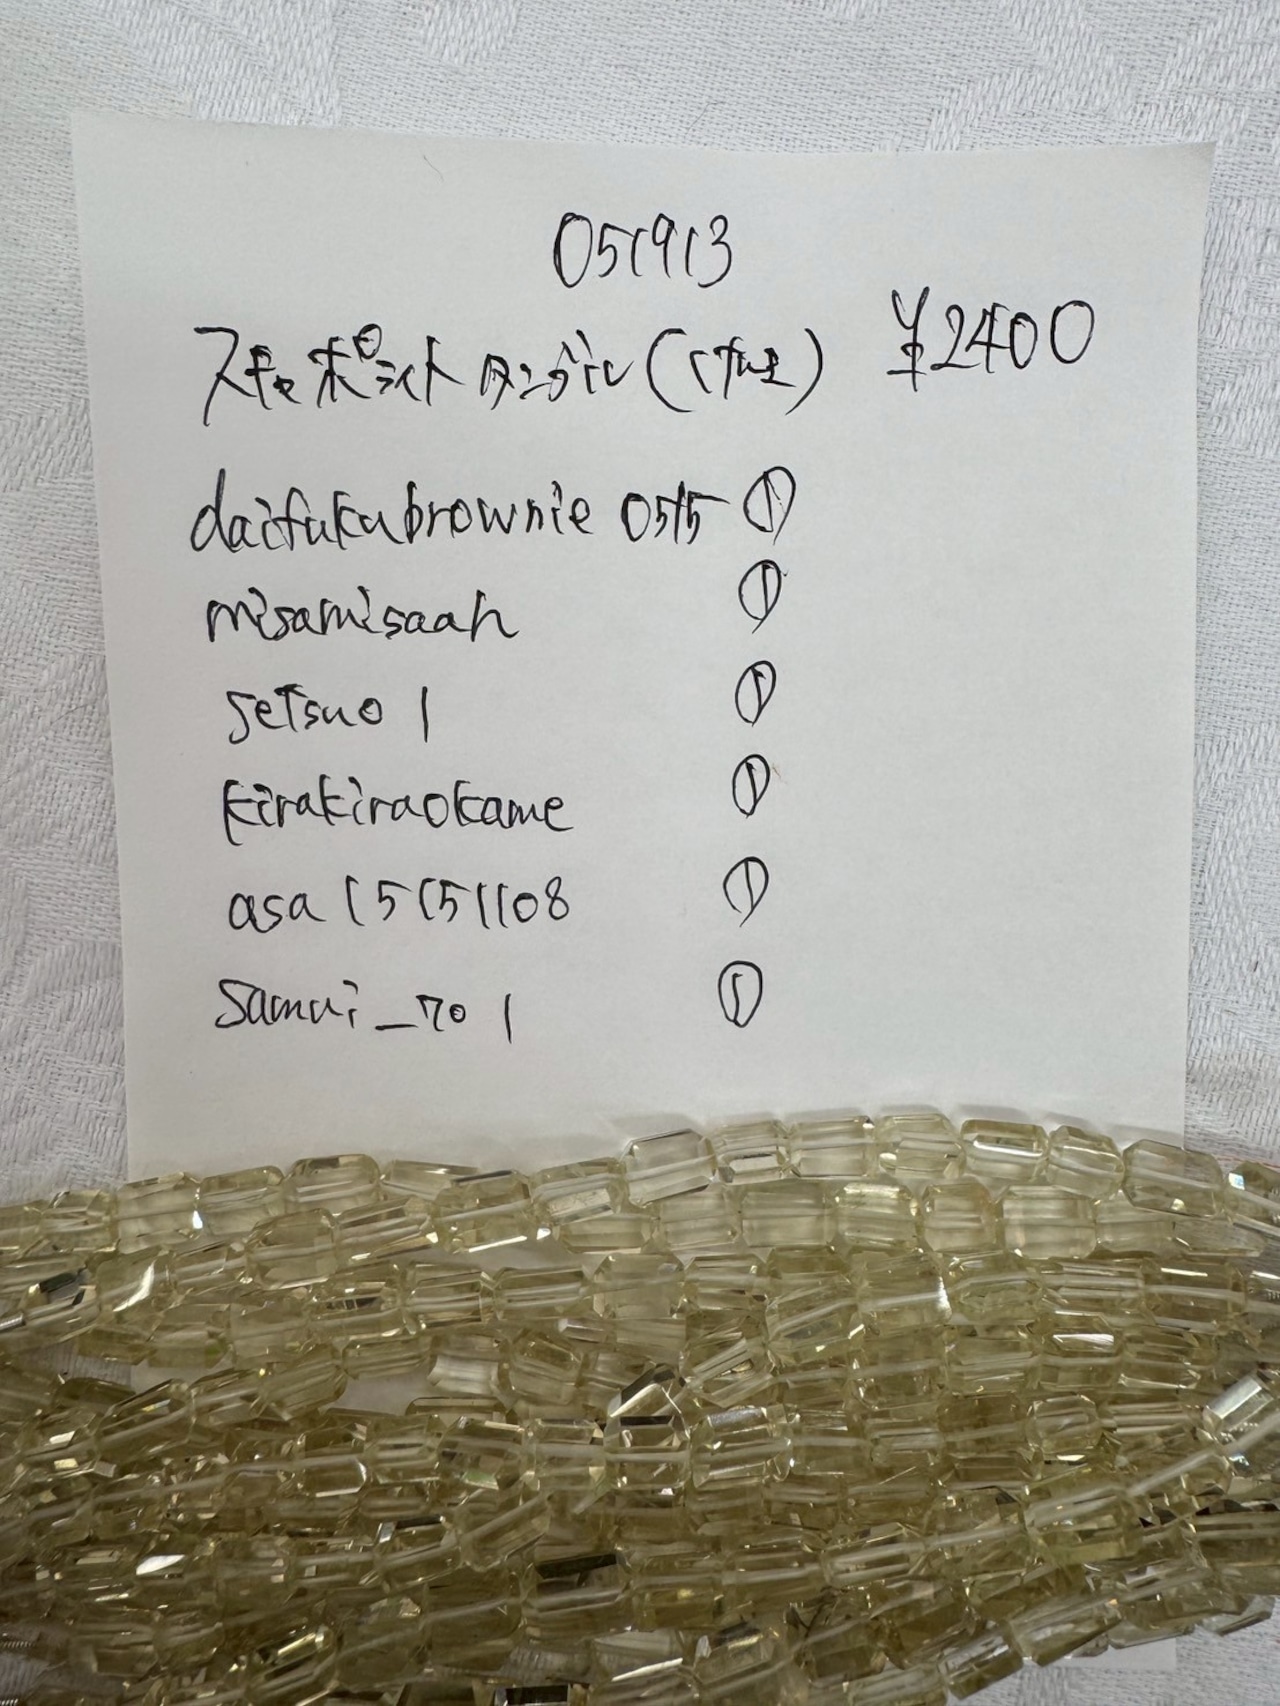 051913
スキャポライト タンブル ¥2400
daifukubrownie 0515 ①
misamisaah ①
setsuo 1 ①
kirakiraokame ①
asa 15151108 ①
samui_701 ①